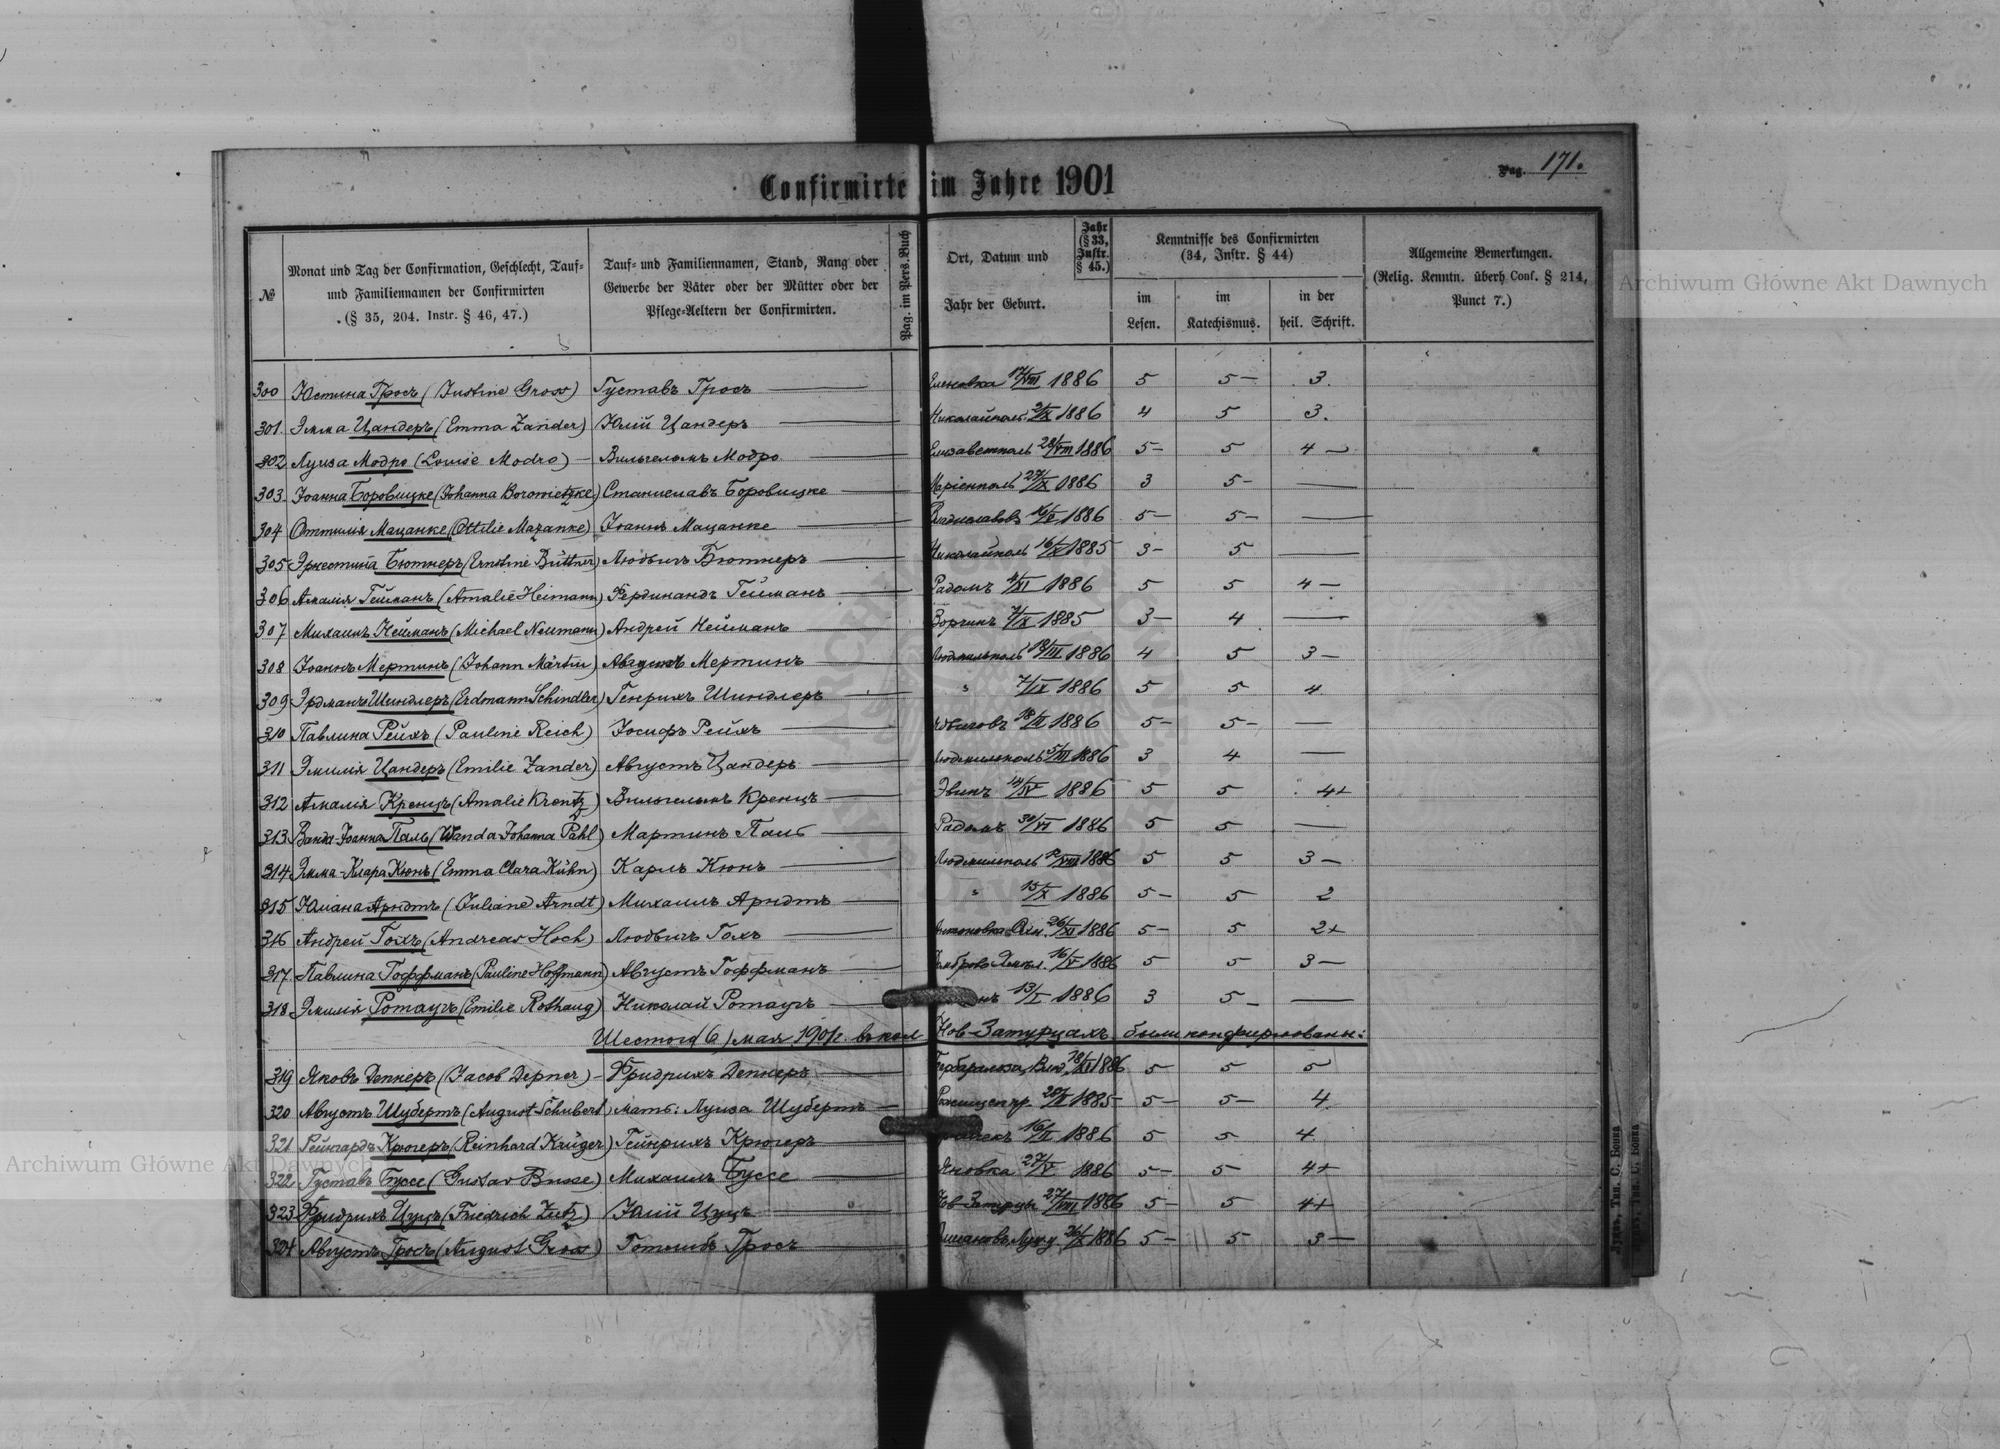 Confirmirte im Jahre 1901
Pag. 171.
№
Monat und Tag der Confirmation, Geschlecht, Tauf-
und Familiennamen der Confirmirten
(§ 35, 204. Instr. § 46, 47.)
Tauf- und Familiennamen, Stand, Rang oder
Gewerbe der Väter oder der Mütter oder der
Pflege-Aeltern der Confirmirten.
Pag. im Pers. Buch
Ort, Datum und
Jahr der Geburt.
Jahr
(§ 33,
Instr.
§ 45.)
Kenntnisse des Confirmirten
(34, Instr. § 44)
im
Lesen.
im
Katechismus.
in der
heil. Schrift.
Allgemeine Bemerkungen.
(Relig. Kenntn. überh Conf. § 214,
Punct 7.)
Archiwum Główne Akt Dawnych
300 Юстина Гросъ (Justine Gross) Густавъ Гросъ 17/VIII 1886 5 5- 3.
301. Эмма Цандеръ (Emma Zander) Юлій Цандеръ Николайполь 2/IX 1886 4 5 3.
302 Луиза Модро (Louise Modro) - Вильгельмъ Модро Елизаветполь 28/VIII 1886 5- 5 4 -
303. Іоанна Боровицке (Johanna Borowietzke) Станиславъ Боровицке 27/IX 1886 3 5- -
304 Оттилія Мацанке (Ottilie Mazanke) Іоаннъ Мацанке Владиславовъ 1886 5- 5- -
305 Эрнестина Бютнеръ (Ernstine Büttner) Людвигъ Бютнеръ Николайполь 1885 3- 5 -
306 Амалія Гейманъ (Amalie Heimann) Фердинандъ Гейманъ Радомъ 4/XI 1886 5 5 4 -
307 Михаилъ Нейманъ (Michael Neumann) Андрей Нейманъ 7/X 1885 3- 4 -
308 Іоаннъ Мертинъ (Johann Märtin) Августъ Мертинъ Людмильполь 19/III 1886 4 5 3 -
309 Эрдманъ Шиндлеръ (Erdmann Schindler) Генрихъ Шиндлеръ " 7/IX 1886 5 5 4
310 Павлина Рейхъ (Pauline Reich) Іосифъ Рейхъ 1886 5- 5- -
311 Эмилія Цандеръ (Emilie Zander) Августъ Цандеръ Людмильполь 1886 3 4 -
312 Амалія Кренцъ (Amalie Krentz) Вильгельмъ Кренцъ 14/IV 1886 5 5 4+
313 Ванда-Іоанна Паль (Wanda Johanna Pahl) Мартинъ Паль Радомъ 30/VI 1886 5 5 -
314 Эмма-Клара Кюнъ (Emma Clara Kühn) Карлъ Кюнъ Людмильполь 1886 5 5 3 -
315 Юліана Арндтъ (Juliane Arndt) Михаилъ Арндтъ " 15/X 1886 5- 5 2
316 Андрей Гохъ (Andreas Hoch) Людвигъ Гохъ Антоновка 26/XI 1886 5- 5 2+
317 Павлина Гоффманъ (Pauline Hoffmann) Августъ Гоффманъ 16/V 1886 5 5 3 -
318 Эмилія Ротаугъ (Emilie Rothaug) Николай Ротаугъ 13/I 1886 3 5- -
Шестого (6) мая 1901 г. въ кол. Нов-Затурцахъ были конфирмованы:
319 Яковъ Депнеръ (Jacob Depner) - Фридрихъ Депнеръ 1886 5- 5 5
320 Августъ Шубертъ (August Schubert) мать: Луиза Шубертъ 1885 5- 5- 4
321 Рейнгардъ Крюгеръ (Reinhard Krüger) Гейнрихъ Крюгеръ 1886 5 5 4
322 Густавъ Буссе (Gustav Busse) Михаилъ Буссе Яновка 27/V 1886 5- 5- 4+
323 Фридрихъ Цуцъ (Friedrich Zutz) Юлій Цуцъ Нов-Затурцы 27/VIII 1886 5- 5 4+
324 Августъ Гросъ (August Gross) Готлибъ Гросъ 1886 5- 5 3 -
Archiwum Główne Akt Dawnych
Луцкъ, Тип. С. Бонка